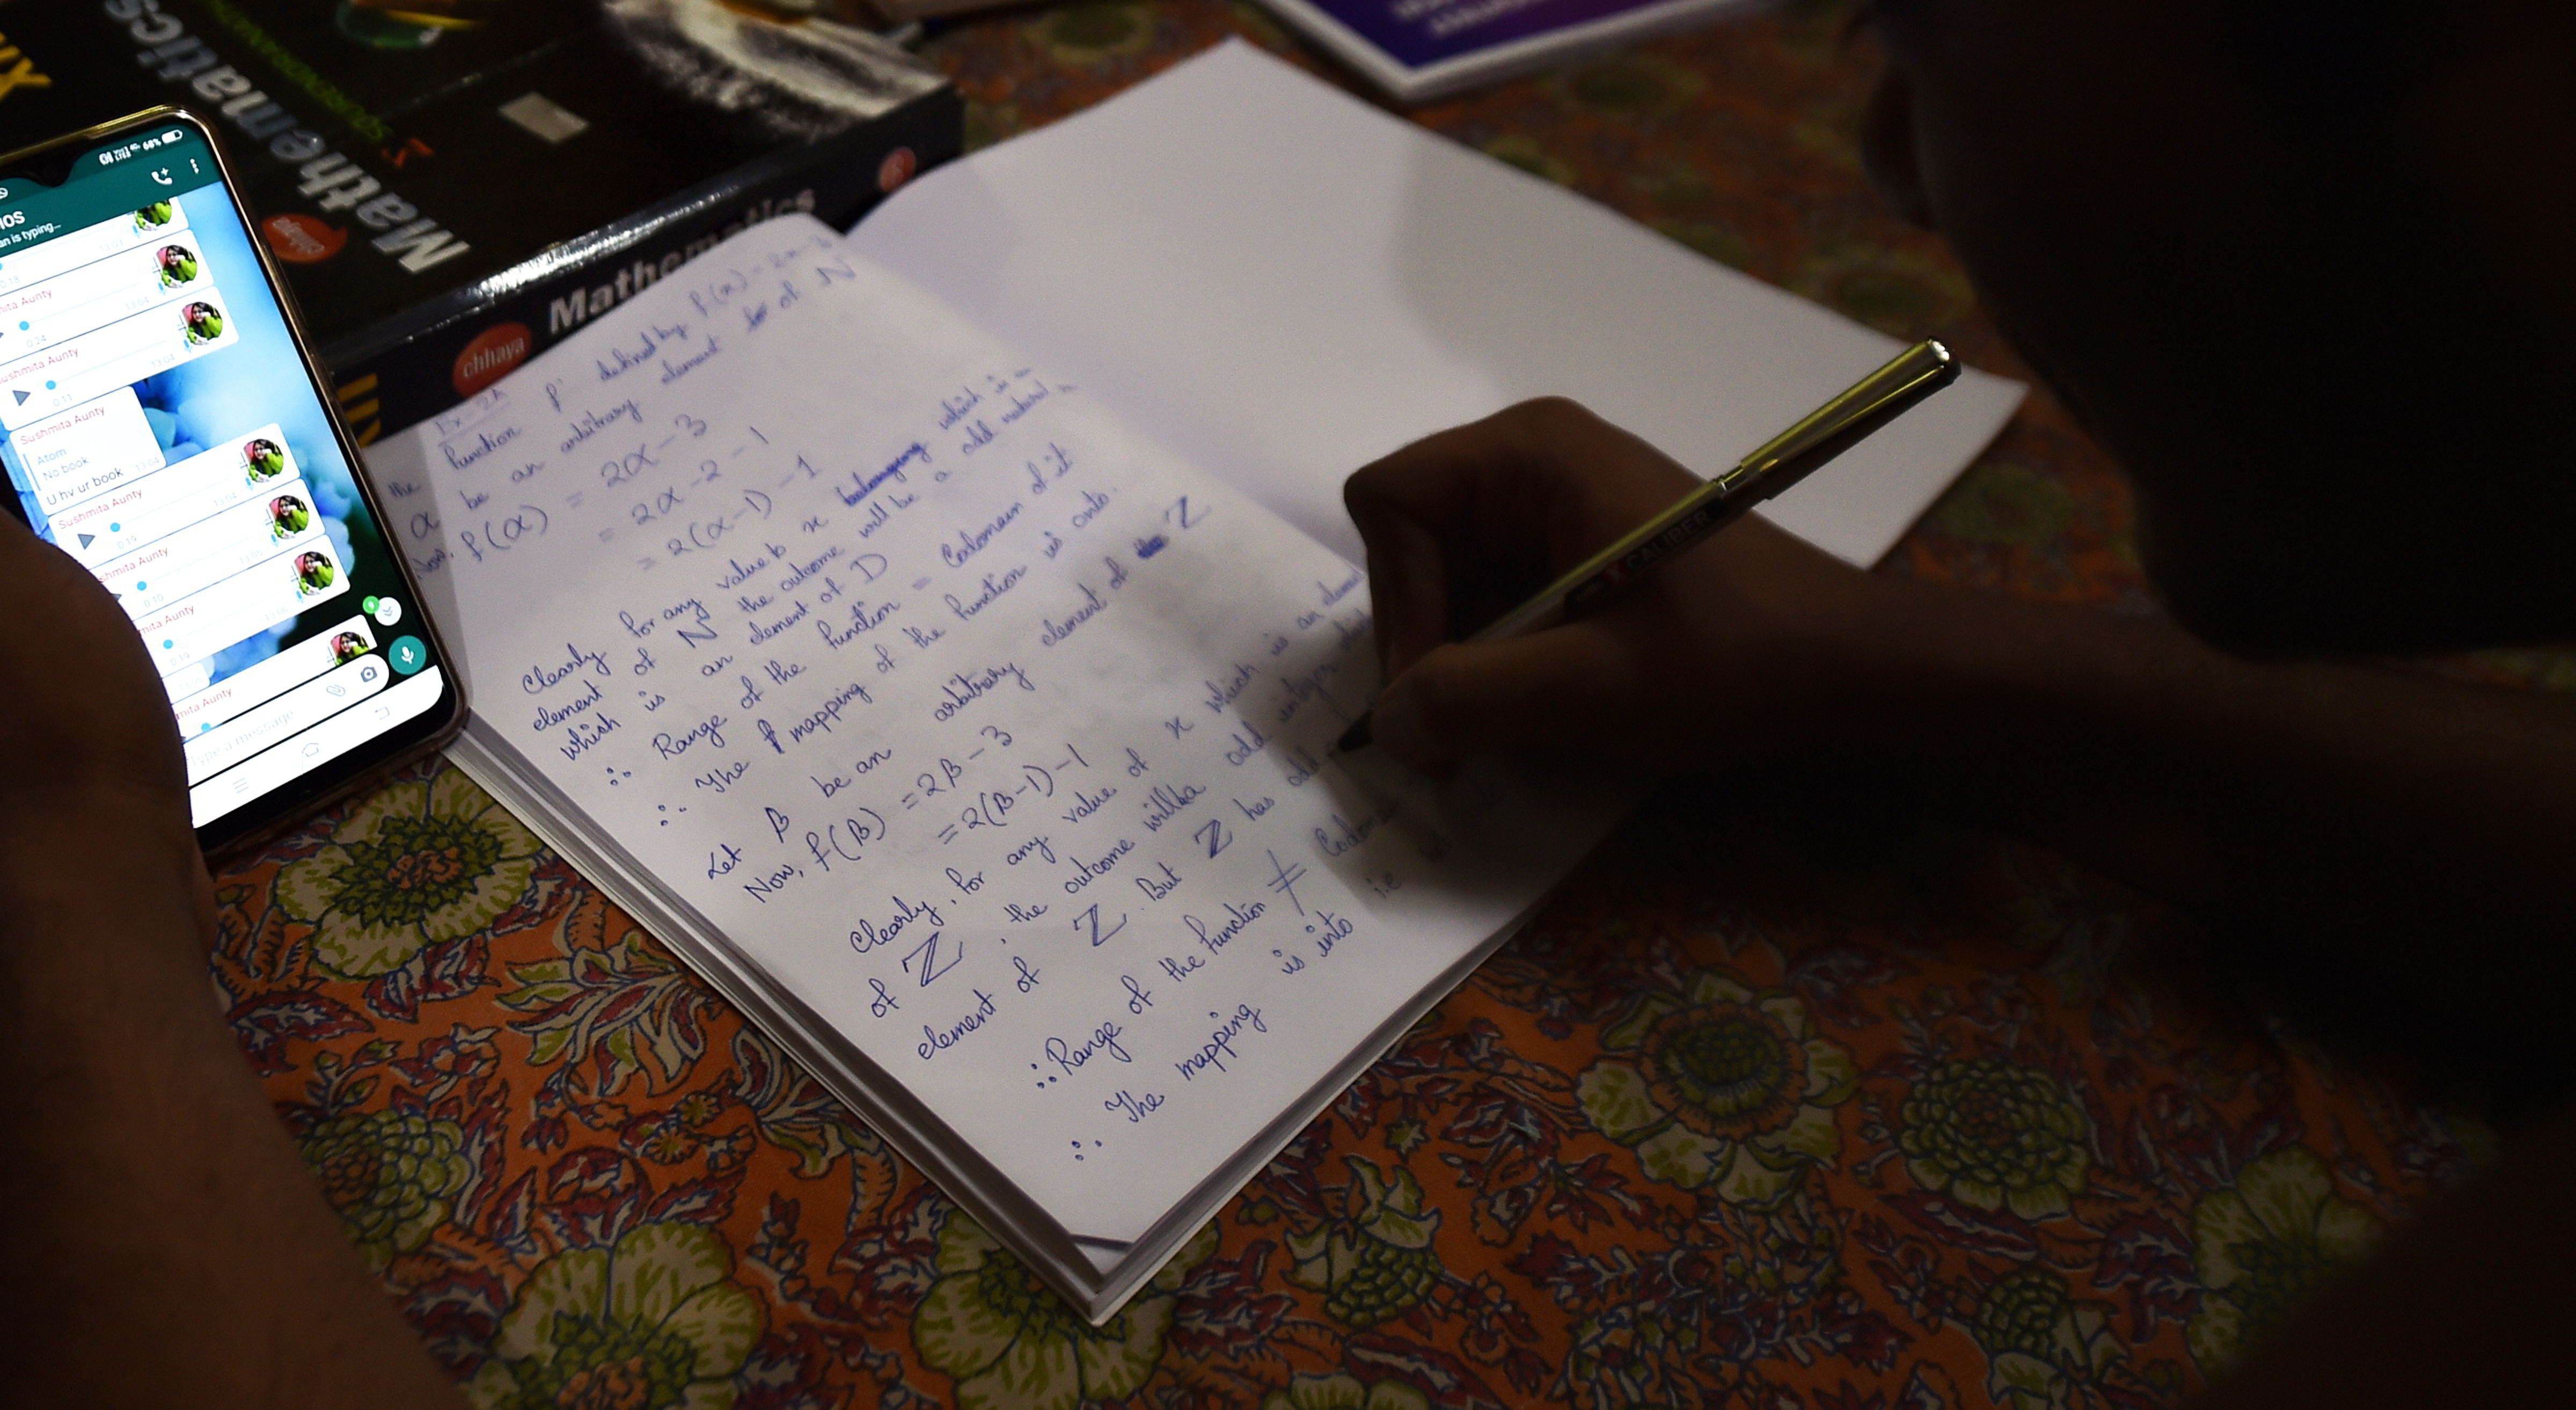 Mathematics
chhaya
Mathematics
chhaya
XII
68%
is typing...
0:18
Aunty
13:04
0:24
Sushmita Aunty
13:04
0:11
Sushmita Aunty
Atom
No book
U hv ur book 13:04
Sushmita Aunty
0:19
13:04
Aunty
0:10
13:05
Aunty
0:19
13:06
Aunty
Type a message
Ex-2A
the function f defined by f(x) = 2x-3
α be an arbitrary element of N
Now, f(α) = 2α-3
= 2α-2-1
= 2(α-1)-1
Clearly for any value x which is
element of N the outcome will be a odd natural
which is an element of D
∴ Range of the function = Codomain of it
∴ The mapping of the function is onto.
Let β be an arbitrary element of Z
Now, f(β) = 2β-3
= 2(β-1)-1
Clearly, for any value of x which is an element
of Z, the outcome will be odd integer which
element of Z. But Z has odd
∴ Range of the function ≠
∴ The mapping is into i.e
CALIBER